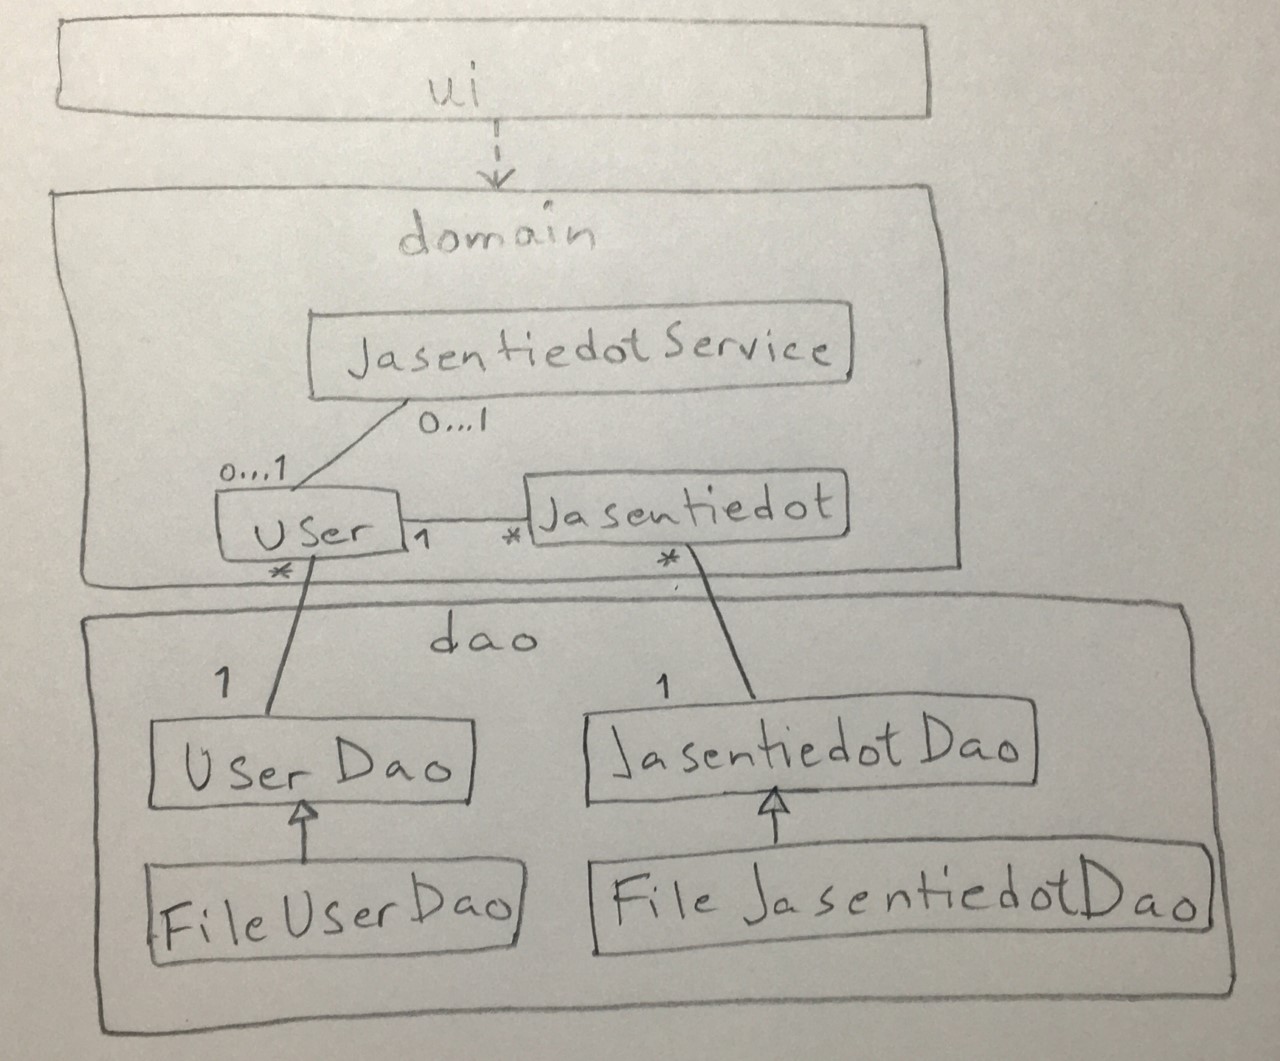 ui
domain
JasentiedotService
0...1
0...1
User
1
*
Jasentiedot
*
*
dao
1
1
UserDao
JasentiedotDao
FileUserDao
File JasentiedotDao